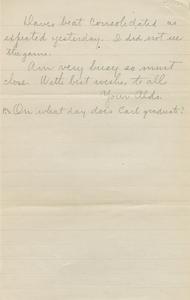 Davis beat Consolidated as
expected yesterday. I did not see
the game.
Am very busy so must
close. With best wishes to all
Your Aldo.
On what day does Carl graduate?